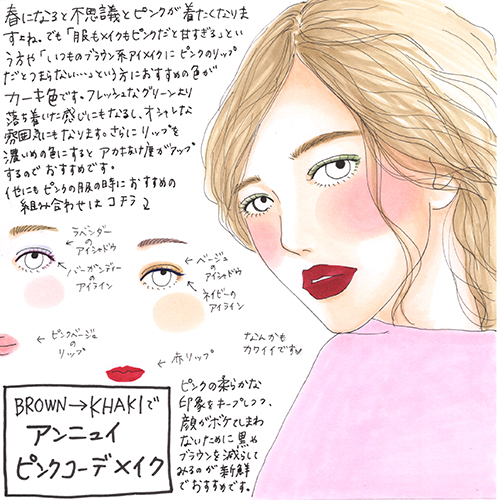 春になると不思議とピンクが着たくなりま
すよね。でも「服もメイクもピンクだと甘すぎる」とい
う方や「いつものブラウン系アイメイクにピンクのリップ
だとつまらない…。」という方におすすめの色が
カーキ色です。フレッシュなグリーンより
落ち着いた感じにもなるし、オシャレな
雰囲気にもなります。さらにリップを
濃いめの色にするとアカぬけ度がアップ
するのでおすすめです。
他にもピンクの服の時におすすめの
組み合わせはコチラ
ラベンダー
の
アイシャドウ
バーガンディー
の
アイライン
ピンクベージュ
の
リップ
ベージュ
の
アイシャドウ
ネイビーの
アイライン
赤リップ
なんかも
カワイイです♥
BROWN→KHAKIで
アンニュイ
ピンクコーデメイク
ピンクの柔らかな
印象をキープしつつ、
顔がボケてしまわ
ないために黒や
ブラウンを減らして
みるのが新鮮
でおすすめです。